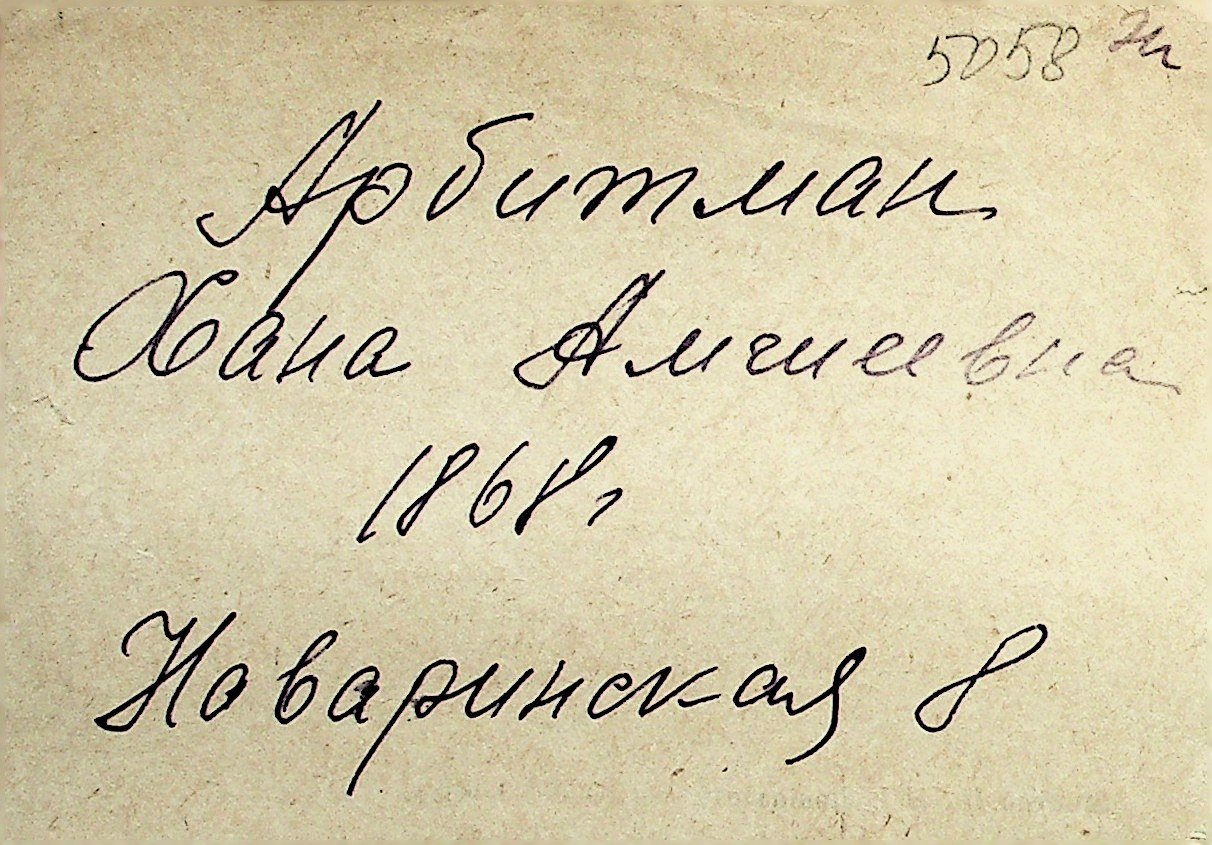 5058
Арбитман
Хана Амшеевна
1868г
Новаринская 8